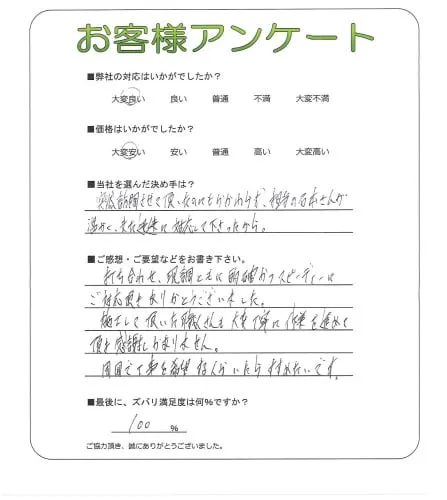 お客様アンケート
■弊社の対応はいかがでしたか?
大変良い 良い 普通 不満 大変不満
■価格はいかがでしたか?
大変安い 安い 普通 高い 大変高い
■当社を選んだ決め手は?
訪問させて頂いたのにもかかわらず、担当の石本さんが
温かく、また迅速に対応して下さったから。
■ご感想・ご要望などをお書き下さい。
打ち合わせ、現調ともに明確かつスピーディーに
ご対応頂きありがとうございました。
施工して頂いた職人さんも大変丁寧に作業を進めて
頂き感謝しかありません。
周囲で工事を希望する人がいたらすすめたいです。
■最後に、ズバリ満足度は何%ですか?
100 %
ご協力頂き、誠にありがとうございました。